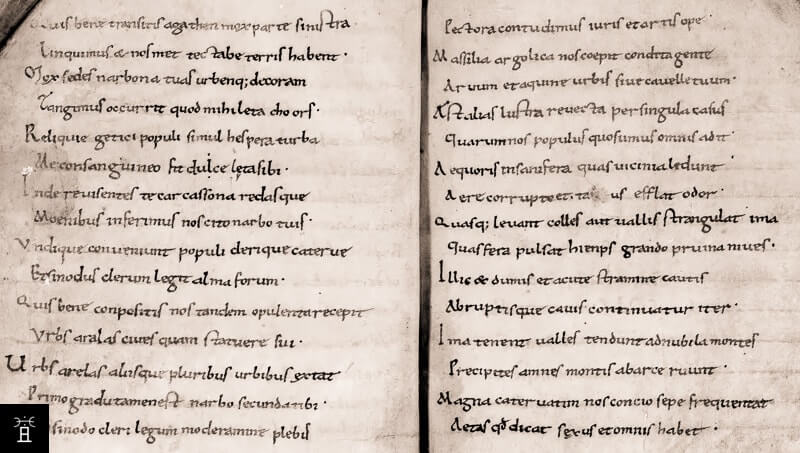 Quis bene transitis agathen mox parte sinistra
Linquimus & nosmet tectabe terris habent·
Mox sedes narbona tuas urbenq; decoram
Tangimus occurrit quod mihi leta chors·
Reliquie getici populi simul hespera turba
Me consanguineo fit dulce letasibi·
Inde revisentes te carcassona redasque
Moenibus inferimus nos cito narbo tuis·
Undique conveniunt populi clerique caterve
Etsinodus clerum legit alma forum·
Quis bene conpositis nos tandem opulenta recepit
Urbs aralas cives quam statuere sui·
Urbs arelas aliisque pluribus urbibus extat
Primo gradu tamen est narbo secunda tibi·
sinodo cleri legum moderamine plebis
Pectora contudimus iuris et artis ope·
Massilia argolica nos coepit condita gente
Arvum et aquine urbis sive cavelle tuum·
Ast alias lustra revecta per singula casus
Quarum nos populus quosumus omnis adit·
Aequoris insanifera quas vicinia ledunt
Aere corrupto et us efflat odor·
Quasq; levant colles aut vallis strangulat ima
Quas fera pulsat hiemps grando pruina nives·
Illic & dumis et acute stramine cautis
Abruptisque cavis continuatur iter·
Ima tenent valles tendunt ad nubila montes
Precipites amnes montis ab arce ruunt·
Magna catervatim nos concio sepe frequentat
Aetas qđ dicat sexus et omnis habet·